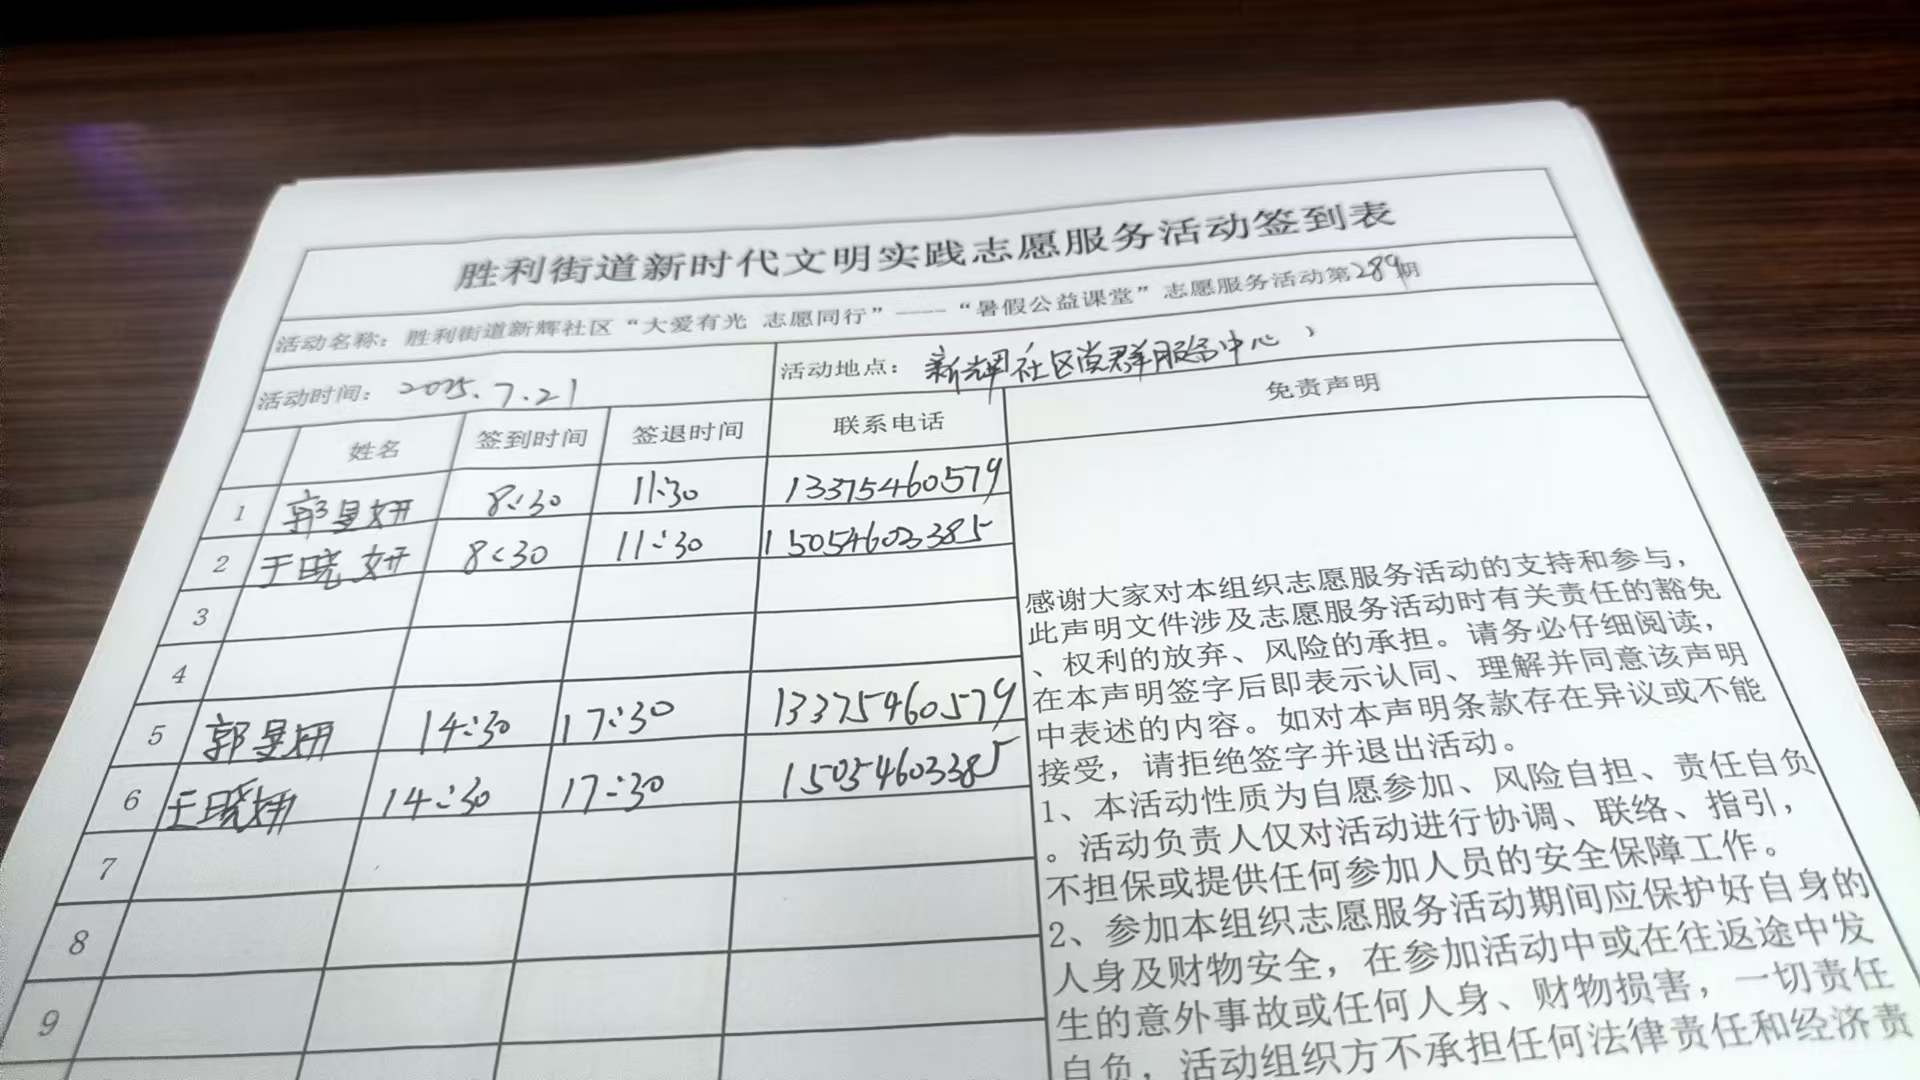 胜利街道新时代文明实践志愿服务活动签到表
活动名称：胜利街道新辉社区“大爱有光 志愿同行”----“暑假公益课堂”志愿服务活动第289期
活动时间：2025.7.21 活动地点：新辉社区党群服务中心
姓名 签到时间 签退时间 联系电话 免责声明
1 郭昱妍 8:30 11:30 13375460579
2 王晓妍 8:30 11:30 15054603385
3
4
5 郭昱妍 14:30 17:30 13375460579
6 王晓妍 14:30 17:30 15054603385
7
8
9
感谢大家对本组织志愿服务活动的支持和参与，
此声明文件涉及志愿服务活动时有关责任的豁免
、权利的放弃、风险的承担。请务必仔细阅读，
在本声明签字后即表示认同、理解并同意该声明
中表述的内容。如对本声明条款存在异议或不能
接受，请拒绝签字并退出活动。
1、本活动性质为自愿参加、风险自担、责任自负
。活动负责人仅对活动进行协调、联络、指引，
不担保或提供任何参加人员的安全保障工作。
2、参加本组织志愿服务活动期间应保护好自身的
人身及财物安全，在参加活动中或在往返途中发
生的意外事故或任何人身、财物损害，一切责任
自负，活动组织方不承担任何法律责任和经济责